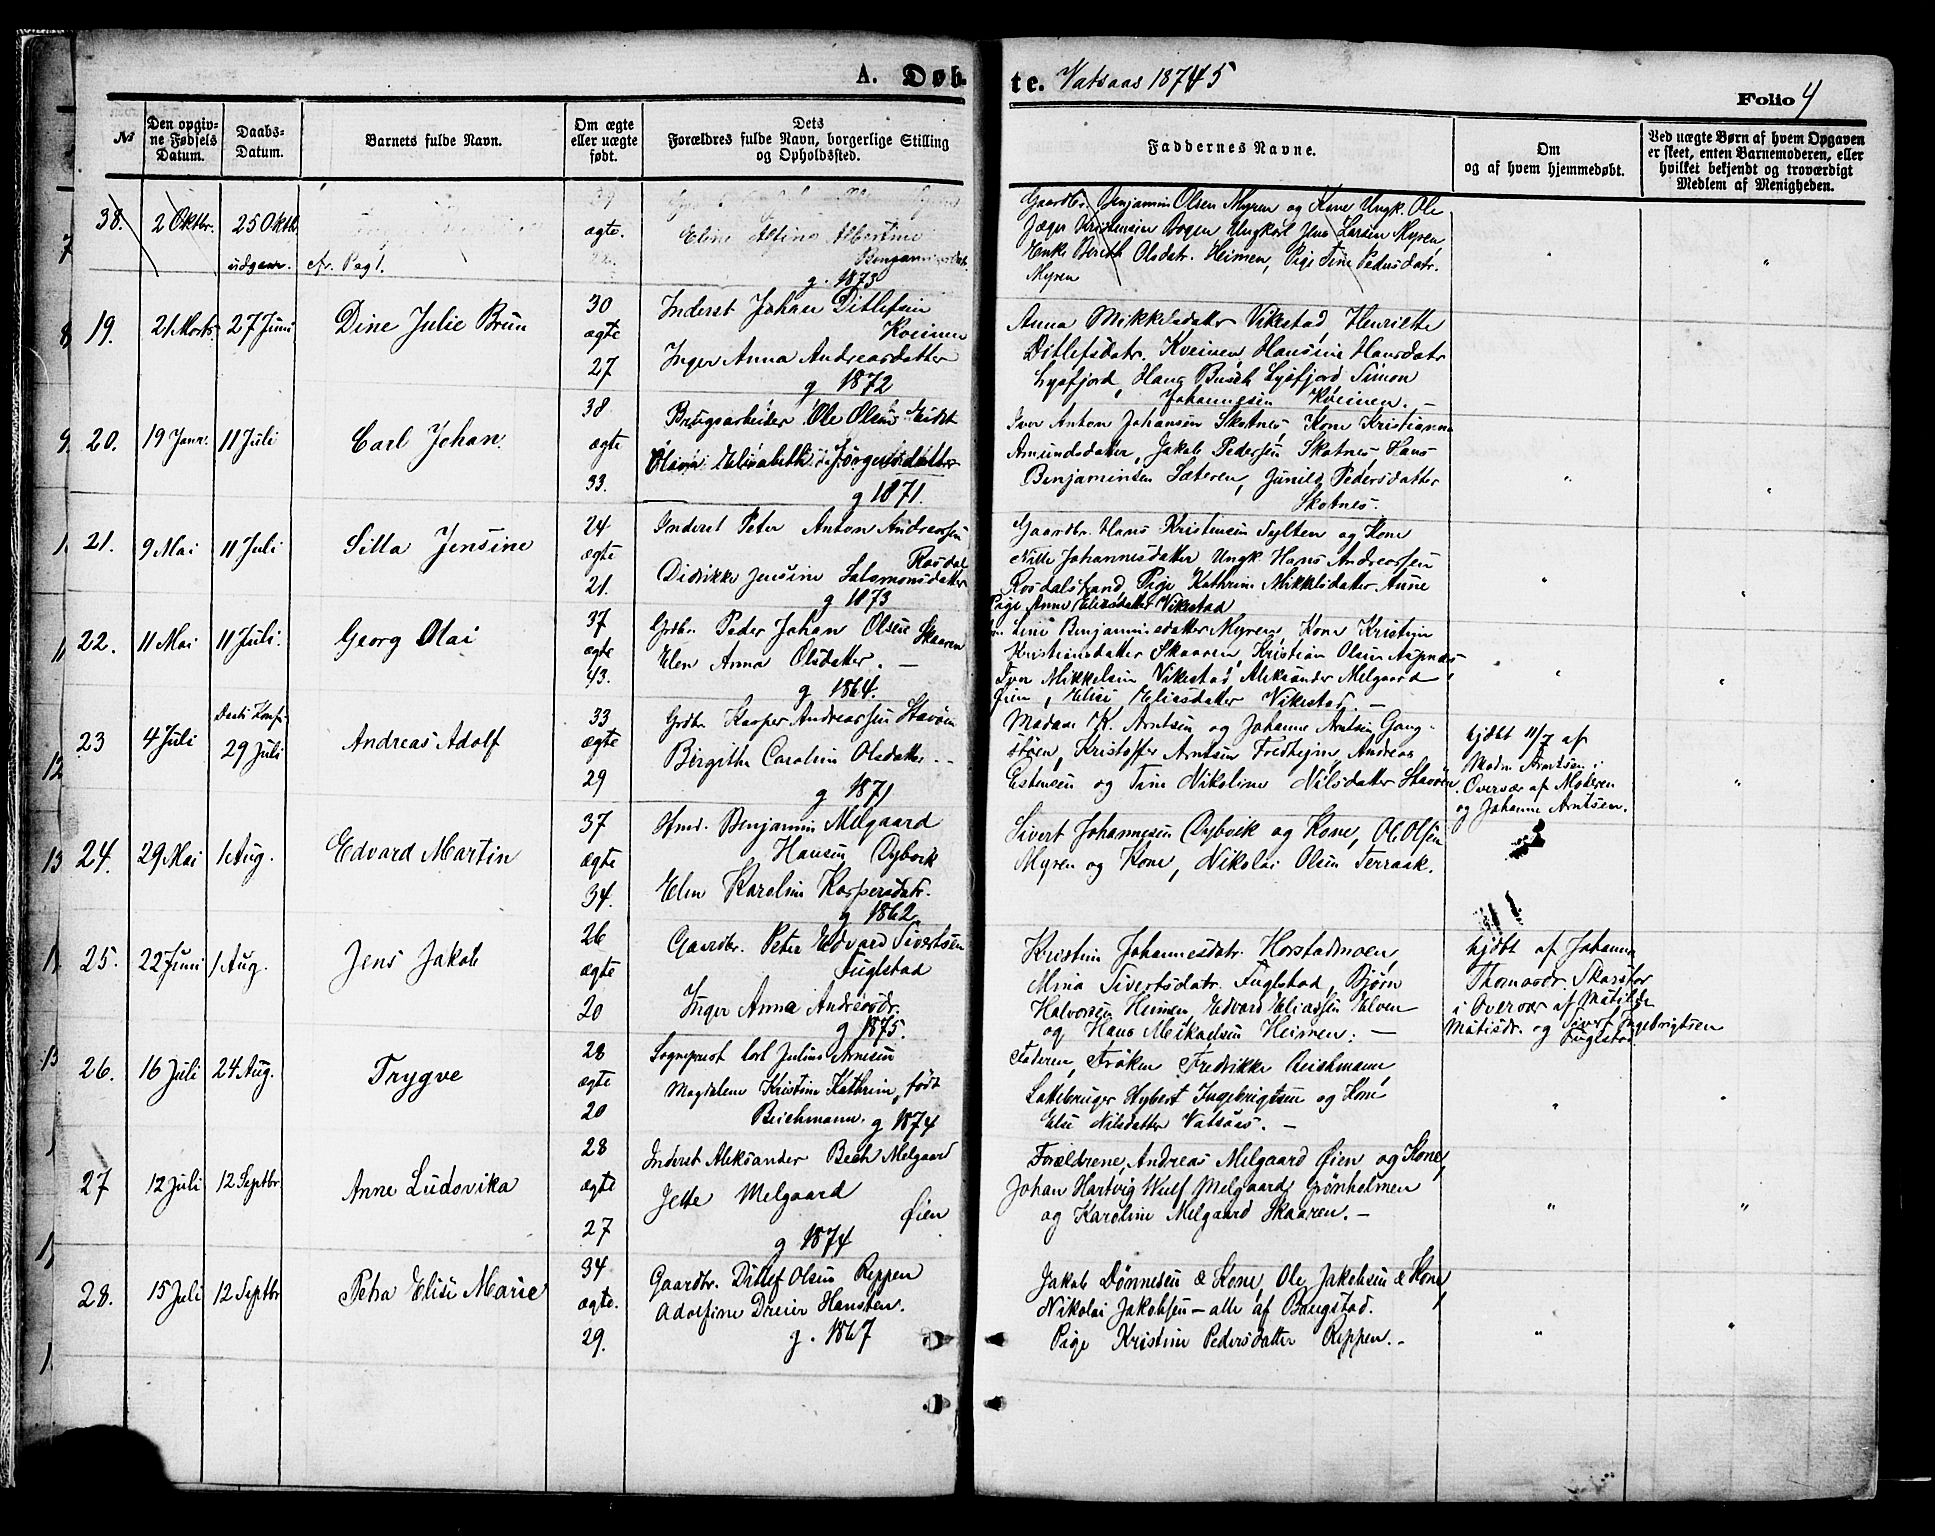 A. Døb
te. Vatsaas 18745
Folio 4
№
Den opgiv-
ne Fødsels
Datum.
Daabs-
Datum.
Barnets fulde Navn.
Om ægte
eller uægte
født.
Dets
Forældres fulde Navn, borgerlige Stilling
og Opholdssted.
Faddernes Navne.
Om
og af hvem hjemmedøbt.
Ved uægte Børn af hvem Opgaven
er skeet, enten Barnemoderen, eller
hvilket bekjendt og troværdigt
Medlem af Menigheden.
38. 2 Oktbr. 25 Oktb.
udgaar.
ægte.
Eline Albertine
Benjaminsdatr.
g. 1873
Gaardbr. Benjamin Olsen Myren og Kone Ungk. Ole
Jæger Kristensen Bogen Ungkarl Jens Larsen Myren,
Enke Berith Olsdatr. Heimen, Pige Tine Pedersdatr.
Myren
19. 21 Marts. 27 Juni Dine Julie Brun
30
ægte
27
Inderst Johan Ditlefsen
Kveinen
Inger Anna Andreasdatter
g 1872
Anna Mikkelsdatter Vikestad, Henriette
Ditlefsdatr. Kveinen, Hansine Hansdatr
Lysfjord, Hans Busch Lysfjord Simon
Johannesen Kveinen. —
20. 19 Janr. 11 Juli Carl Johan.
38
ægte
33.
Brugsarbeider Ole Olsen Eidet
Elisabeth Jørgensdatter
g 1871.
Iver Anton Johansen Skotnes, Kone Kristianna
Amundsdatter, Jakob Pedersen Skotnes, Hans
Benjaminsen Sæteren, Gunild Pedersdatter
Skotnes.
21. 9 Mai 11 Juli Silla Jensine
24
ægte
21.
Inderst Peter Anton Andreassen
Rosdal
Didrikke Jensine Salamonsdatter
g 1873
Gaardbr. Hans Kristensen Sylten og Kone
Nille Johannesdatter Ungk. Hans Andreassen
Rosdalstrand, Pige Kathrine Mikkelsdatter Aune
Pige Anne Eliasdatter Vikestad
22. 11 Mai 11 Juli. Georg Olai
37
ægte
43.
Grdbr. Peder Johan Olsen Skaaren
Elen Anna Olsdatter. —
g 1864.
Line Benjaminsdatter Myren, Kone Kristine
Kristiansdatter Skaaren, Kristian Olsen Aspnes
Iver Mikkelsen Vikestad, Aleksander Melgaard
Øien, Elise Eliasdatter Vikestad. —
23 4 Juli 29 Juli Andreas Adolf
33
ægte
29
Grdbr Kasper Andreassen Stavøen
Birgitha Caroline Olsdatter. —
g 1871
Madam K. Arntsen og Johanne Arntsen Gang-
støen, Kristoffer Arntsen Fredheim, Andreas
Estensen og Tine Nikoline Nilsdatter Stavøen.
hjdbt 11/7 af
Madm. Arntsen i
Overvær af Moderen
og Johanne Arntsen.
24. 29 Mai 1 Aug. Edvard Martin
37
ægte
34.
Hmd. Benjamin Melgaard
Hansen Dybvik
Elen Karoline Kaspersdatr.
g 1862
Sivert Johannesen Dybvik og Kone, Ole Olsen
Myren og Kone, Nikolai Olsen Terraak.
25. 22 Juni 1 Aug. Jens Jakob
26
ægte
20
Gaardbr. Peter Edvard Sivertsen
Fuglstad
Inger Anna Andreasdr.
g 1875.
Kristine Johannesdatr. Horstadmoen,
Mina Sivertsdatr. Fuglstad, Bjørn
Halvorsen Heimen, Edvard Eliassen Elven
og Hans Mikaelsen Heimen. —
hjdbt af Johanna
Thomasdr. Skarstad
i Overvær af Matilde
Matisdr. og Sivert Ingebrigtsen
Fuglstad
26. 16 Juli 24 Aug. Trygve
28
ægte
20
Sogneprest Carl Julius Arnesen
Magdalene Kristine Kathrine, født
Beichmann. g 1874
Faderen, Frøken Fredrikke Beichmann,
Lottebruger Hybert Ingebrigtsen og Kone
Else Nilsdatter Vatsaas. —
27 12 Juli 12 Septbr. Anne Ludovika
28
ægte
27
Inderst Aleksander Bech Melgaard
Jette Melgaard
Øien
g 1874
Forældrene, Andreas Melgaard Øien og Kone,
Johan Hartvig Wulf Melgaard Grønholmen
og Karoline Melgaard Skaaren. —
28. 15 Juli 12 Septbr Petra Elise Marie
34
ægte.
29.
Gaardbr. Ditlef Olsen Reppen
Adolfine Dreier Hansten.
g. 1867
Jakob Dønnesen & Kone, Ole Jakobsen & Kone,
Nikolai Jakobsen — alle af Bangstad.
Pige Kristine Pedersdatter Reppen. —